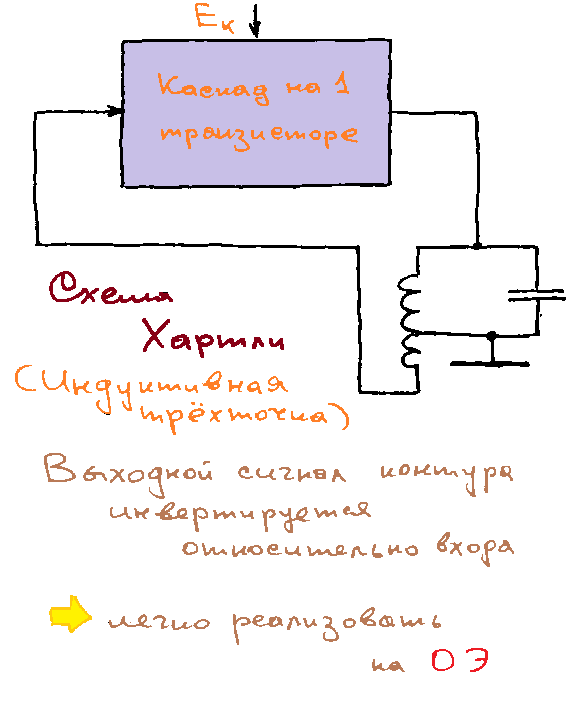 Eк
Каскад на 1
транзисторе
Схема
Хартли
(Индуктивная
трёхточка)
Выходной сигнал контура
инвертируется
относительно входа
легко реализовать
на ОЭ